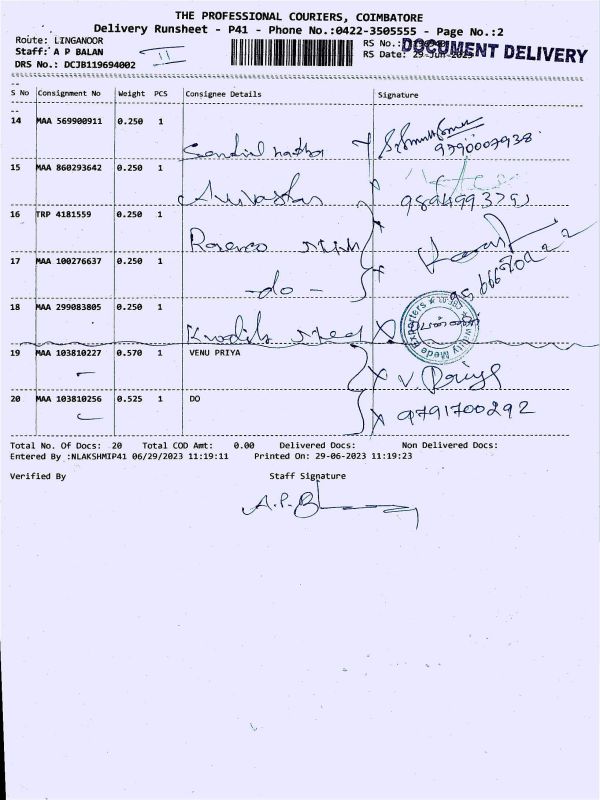 THE PROFESSIONAL COURIERS, COIMBATORE
Delivery Runsheet - P41 - Phone No.:0422-3505555 - Page No.:2
Route: LINGANOOR
Staff: A P BALAN
II
DRS No.: DCJB119694002
RS No.:
RS Date: 29-Jun-2023
DOCUMENT DELIVERY
S No Consignment No Weight PCS Consignee Details Signature
14 MAA 569900911 0.250 1
9790007938
15 MAA 860293642 0.250 1
16 TRP 4181559 0.250 1
17 MAA 100276637 0.250 1
-do-
18 MAA 299083805 0.250 1
19 MAA 103810227 0.570 1 VENU PRIYA
V. Priya
20 MAA 103810256 0.525 1 DO
9791700292
Total No. Of Docs: 20 Total COD Amt: 0.00 Delivered Docs: Non Delivered Docs:
Entered By :NLAKSHMIP41 06/29/2023 11:19:11 Printed On: 29-06-2023 11:19:23
Verified By Staff Signature
A.P.B